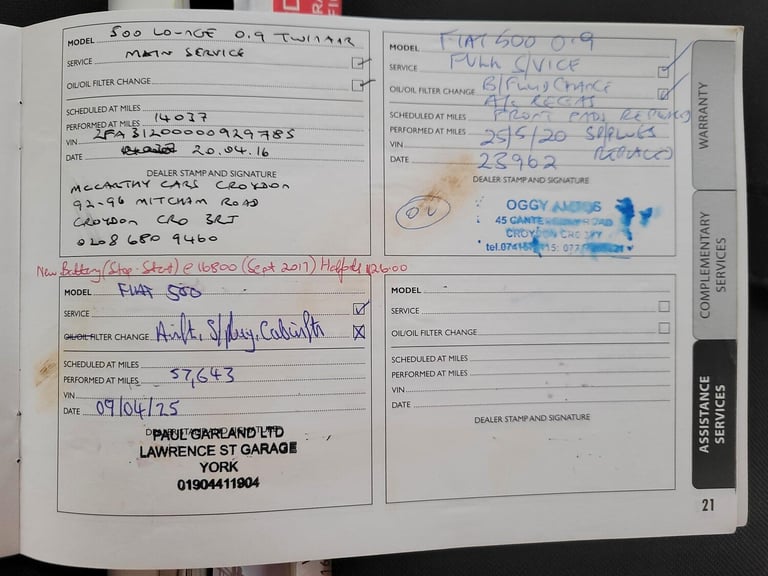 MODEL 500 LOUNGE 0.9 TWINAIR
SERVICE MAIN SERVICE
OIL/OIL FILTER CHANGE
SCHEDULED AT MILES
PERFORMED AT MILES 14037
VIN ZFA31200000929785
DATE 20.04.16
DEALER STAMP AND SIGNATURE
MCCARTHY CARS CROYDON
92-96 MITCHAM ROAD
CROYDON CRO 3RJ
0208 680 9460
MODEL FIAT 500 0.9
SERVICE FULL S/VICE
OIL/OIL FILTER CHANGE B/FLUID CHANGE
A/C REGAS
SCHEDULED AT MILES FRONT PADS REPLACED
PERFORMED AT MILES 25/5/20 SP/PLUGS
VIN REPLACED
DATE 23962
DEALER STAMP AND SIGNATURE
OGGY
45
CROYDON
tel.
New Battery (Stop-Start) @ 16800 (Sept 2017) Halfords £126.00
MODEL FIAT 500
SERVICE
OIL/OIL FILTER CHANGE Airflt, S/plug, Cabinflt
SCHEDULED AT MILES
PERFORMED AT MILES 57,643
VIN
DATE 09/04/25
DEALER STAMP AND SIGNATURE
PAUL GARLAND LTD
LAWRENCE ST GARAGE
YORK
01904411904
MODEL
SERVICE
OIL/OIL FILTER CHANGE
SCHEDULED AT MILES
PERFORMED AT MILES
VIN
DATE
DEALER STAMP AND SIGNATURE
WARRANTY
COMPLEMENTARY
SERVICES
ASSISTANCE
SERVICES
21